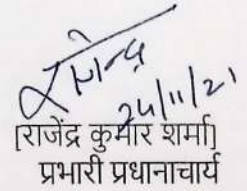 24/11/21
[राजेंद्र कुमार शर्मा]
प्रभारी प्रधानाचार्य